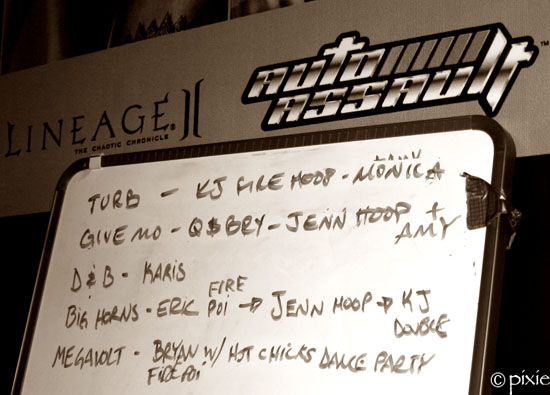 LINEAGE II
THE CHAOTIC CHRONICLE
auto assault™
TURB - KJ FIRE HOOP - MONICA
GIVE MO - Q$BRY - JENN HOOP + AMY
D & B - KARIS
BIG HORNS - ERIC FIRE POI → JENN HOOP → KJ DOUBLE
MEGAVOLT - BRYAN W/ HOT CHICKS DANCE PARTY
FIRE POI
© pixie